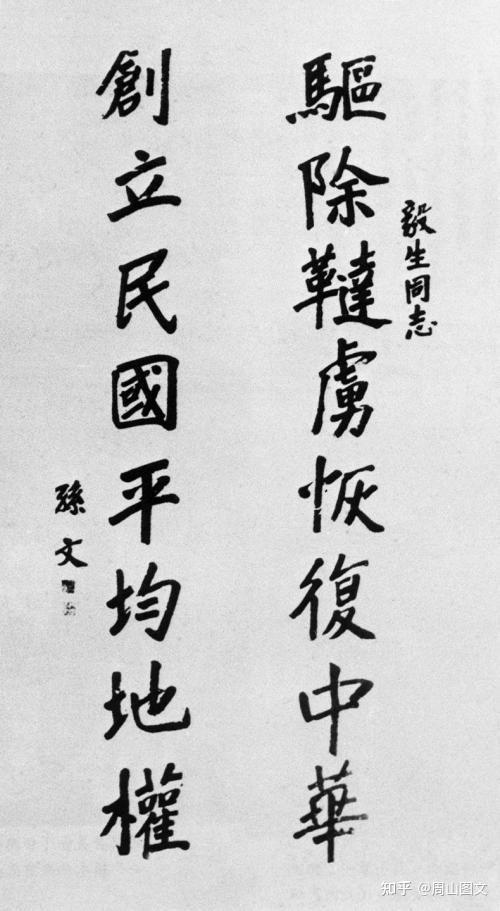 毅生同志
驅除韃虜恢復中華
創立民國平均地權
孫文
知乎 @周山图文